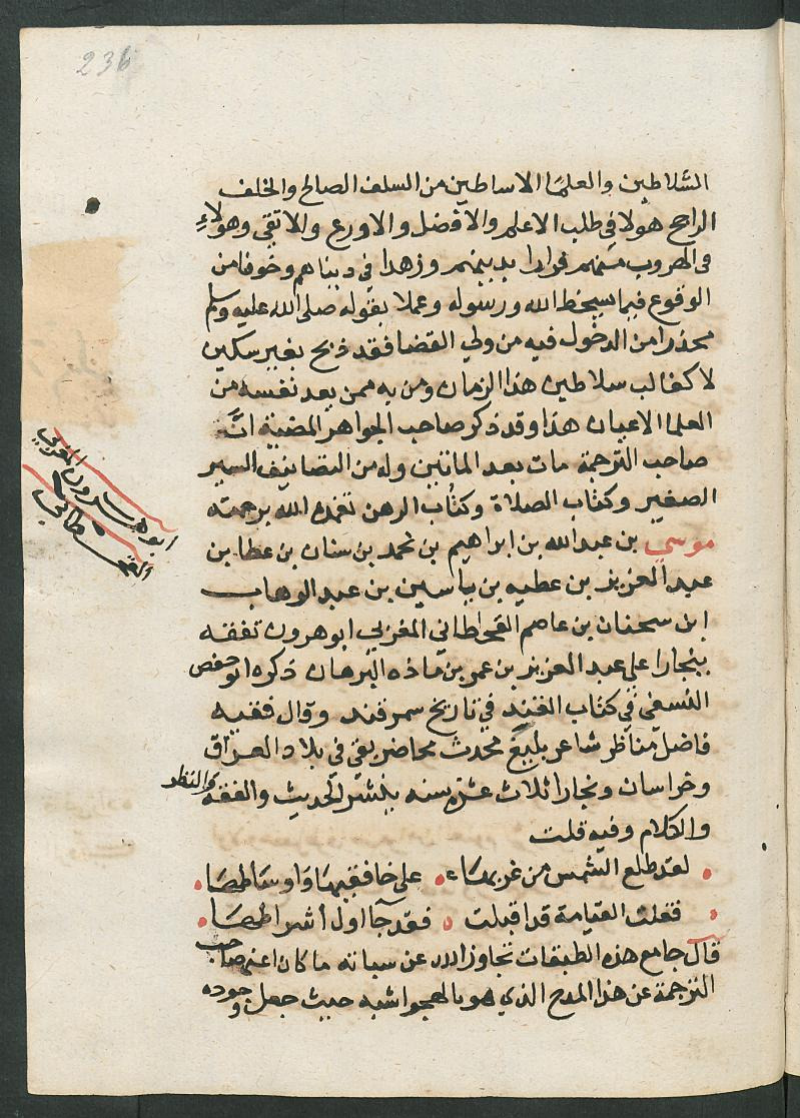 236
السلاطين والعلما الاساطين من السلف الصالح والخلف
الراجح هولا في طلب الاعلم والافضل والاورع والاتقى وهولاء
في الهروب منهم فرارا بدينهم وزهدا في دنياهم وخوفا من
الوقوع فيما يسخط الله ورسوله وعملا بقوله صلى الله عليه وسلم
محذرا من الدخول فيه من ولي القضا فقد ذبح بغير سكين
لا كغالب سلاطين هذا الزمان ومن به ممن يعد نفسه من
العلما الاعيان هذا وقد ذكر صاحب الجواهر المضية انه
صاحب الترجمة مات بعد الماتين وله من التصانيف السير
الصغير وكتاب الصلاة وكتاب الرهن تغمده الله برحمته
موسي بن عبد الله بن ابراهيم بن محمد بن سنان بن عطا بن
عبد العزيز بن عطيه بن ياسين بن عبد الوهاب
ابن سحنان بن عاصم القحطاني المغربي ابو هرون تفقه
ببخارا على عبد العزيز بن عمر بن مازه البرهان ذكره ابو حفص
النسفي في كتاب القند في تاريخ سمرقند وقال فقيه
فاضل مناظر شاعر بليغ محدث محاضر بقي في بلاد العراق
وخراسان وبخارا ثلاث عشره سنه ينشر الحديث والفقه والنظر
والكلام وفيه قلت
لقد طلع الشمس من غربها على خافقيها واوساطها
فقلت القيامة قد اقبلت فقد جا اول أشراطها
قال جامع هذه الطبقات تجاوز الله عن سياته ما كان اغنى صاحب
الترجمة عن هذا المدح الذي هو بالهجو اشبه حيث جعل وجوده
ابو هرون المغربي
القحطاني